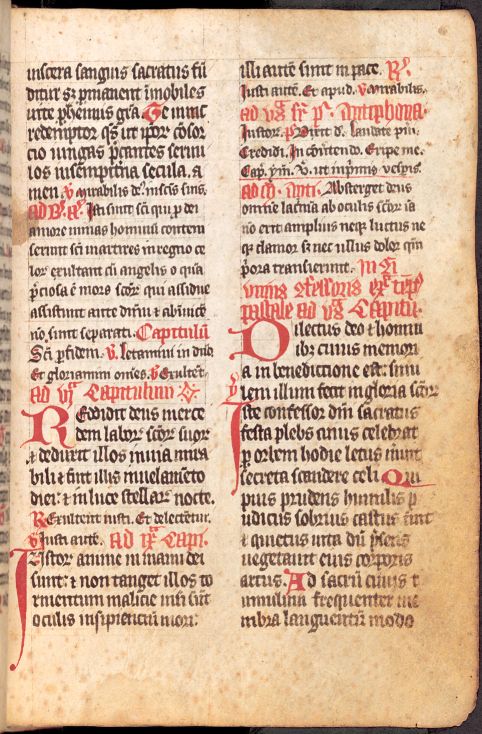 viscera sanguis sacratus fu
ditur s; pmanent imobiles
vite phennis gra. Te nunc
redemptor qs ut ipor cosor
cio iungas pcantes servu
los in sempitna secula. a
men. V. mirabilis de9 in scis suis.
ad B. a. Isti sunt sci qui p dei
amore minas hominu contem
serunt sci martires in regno ce
lor exultant cu angelis o qua
pciosa e mors scor qui assidue
assistunt ante dnm & abinvice
no sunt separati. Capitulu
Sci p fidem. V. letamini in dno
Et gloriamini omes. V. Exultet
ad vja Capitulum
Reddidit deus merce
dem labor scor suor
& deduxit illos in via mira
bili & fuit illis in velameto
diei: & in luce stellar nocte.
R. Exultent iusti. Et delectetur.
V. Iusti aute. ad ixa Capi.
Iustor anime in manu dei
sunt: & non tanget illos to
rmentum malicie visi sut
oculis insipienciu mori:
illi aute sunt in pace. R.
Iusti aute. Et apud. V. mirabilis.
ad va Antiphona
Iustor. p. Dixit d. laudate pui.
Credidi. In covtendo. Eripe me.
Cap. ym. V. ut in primis vespis.
ad co. anti. Absterget deus
omne lacrima ab oculis scor ia
no erit amplius neq luctus ne
q clamor s; nec ullus dolor qm
pora transierunt. In fi
unius cfessoris
pascale ad va Capitu.
Dilectus deo & homini
ib9 cuius memori
a in benedictione est: simi
lem illum fecit in gloria scor
Iste confessor dni sacratus
festa plebs cuius celebrat
p orbem hodie letus meruit
secreta scandere celi. Qui
pius prudens humilis p
udicus sobrius castus fuit
& quietus vita dum psens
vegetavit eius corporis
artus. Ad sacru cuius t
umulum frequenter me
mbra languentiu modo